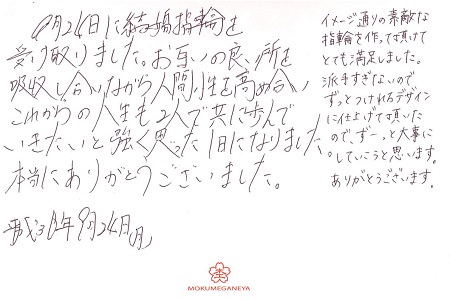 9月24日に結婚指輪を
受け取りました。お互いの良い所を
吸収し合いながら人間性を高め合い
これからの人生も2人で共に歩んで
いきたいと強く思った1日になりました
本当にありがとうございました。
年9月24日(月)
イメージ通りの素敵な
指輪を作って頂けて
とても満足しました。
派手すぎないので
ずっとつけれるデザイン
に仕上げて頂いた
ので、ずーっと大事に
していこうと思います。
ありがとうございます。
MOKUMEGANEYA